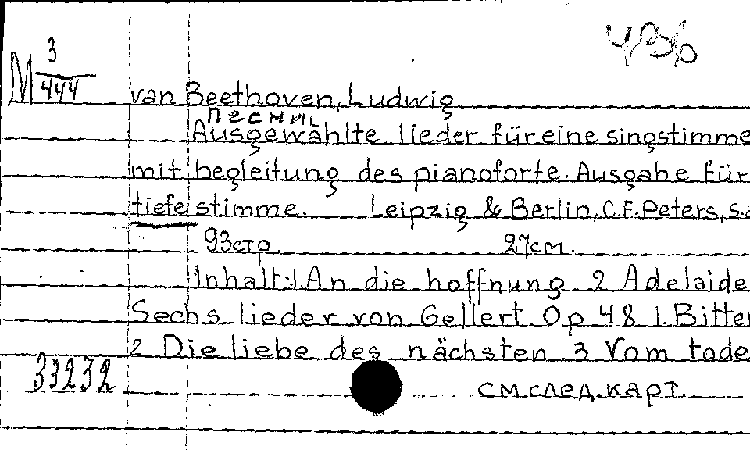 M 3/444
van Beethoven, Ludwig
песни
Ausgewählte lieder für eine singstimme
mit begleitung des pianoforte. Ausgabe für
tiefe stimme. Leipzig & Berlin, C.F. Peters, s.a
93 стр. 27 см.
Inhalt: 1 An die hoffnung 2 Adelaide
Sechs lieder von Gellert Op 48 1. Bitten
2 Die liebe des nächsten 3 Vom tode
33232
см. след. карт